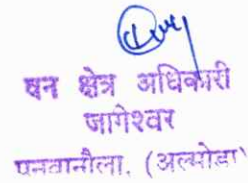 वन क्षेत्र अधिकारी
जागेश्वर
पनवानौला, (अल्मोडा)